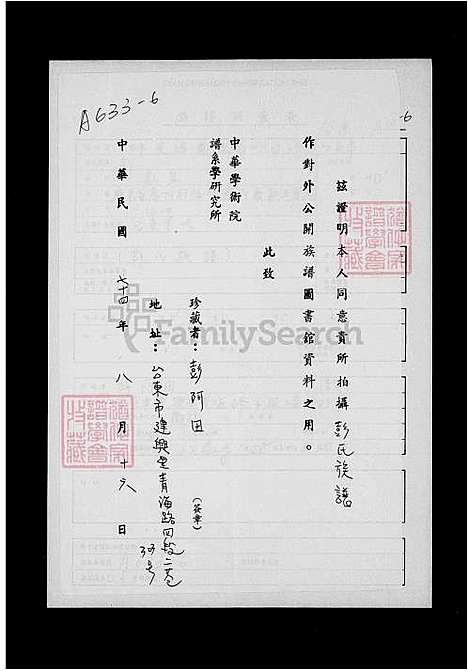 A633-6
-6
茲證明本人同意貴所拍攝彭氏族譜
作對外公開族譜圖書館資料之用。
此致
中華學術院
譜系學研究所
珍藏者：彭阿田（簽章）
地址：台東市建興里青海路四段二巷
33号
中華民國七十四年八月十六日
FamilySearch